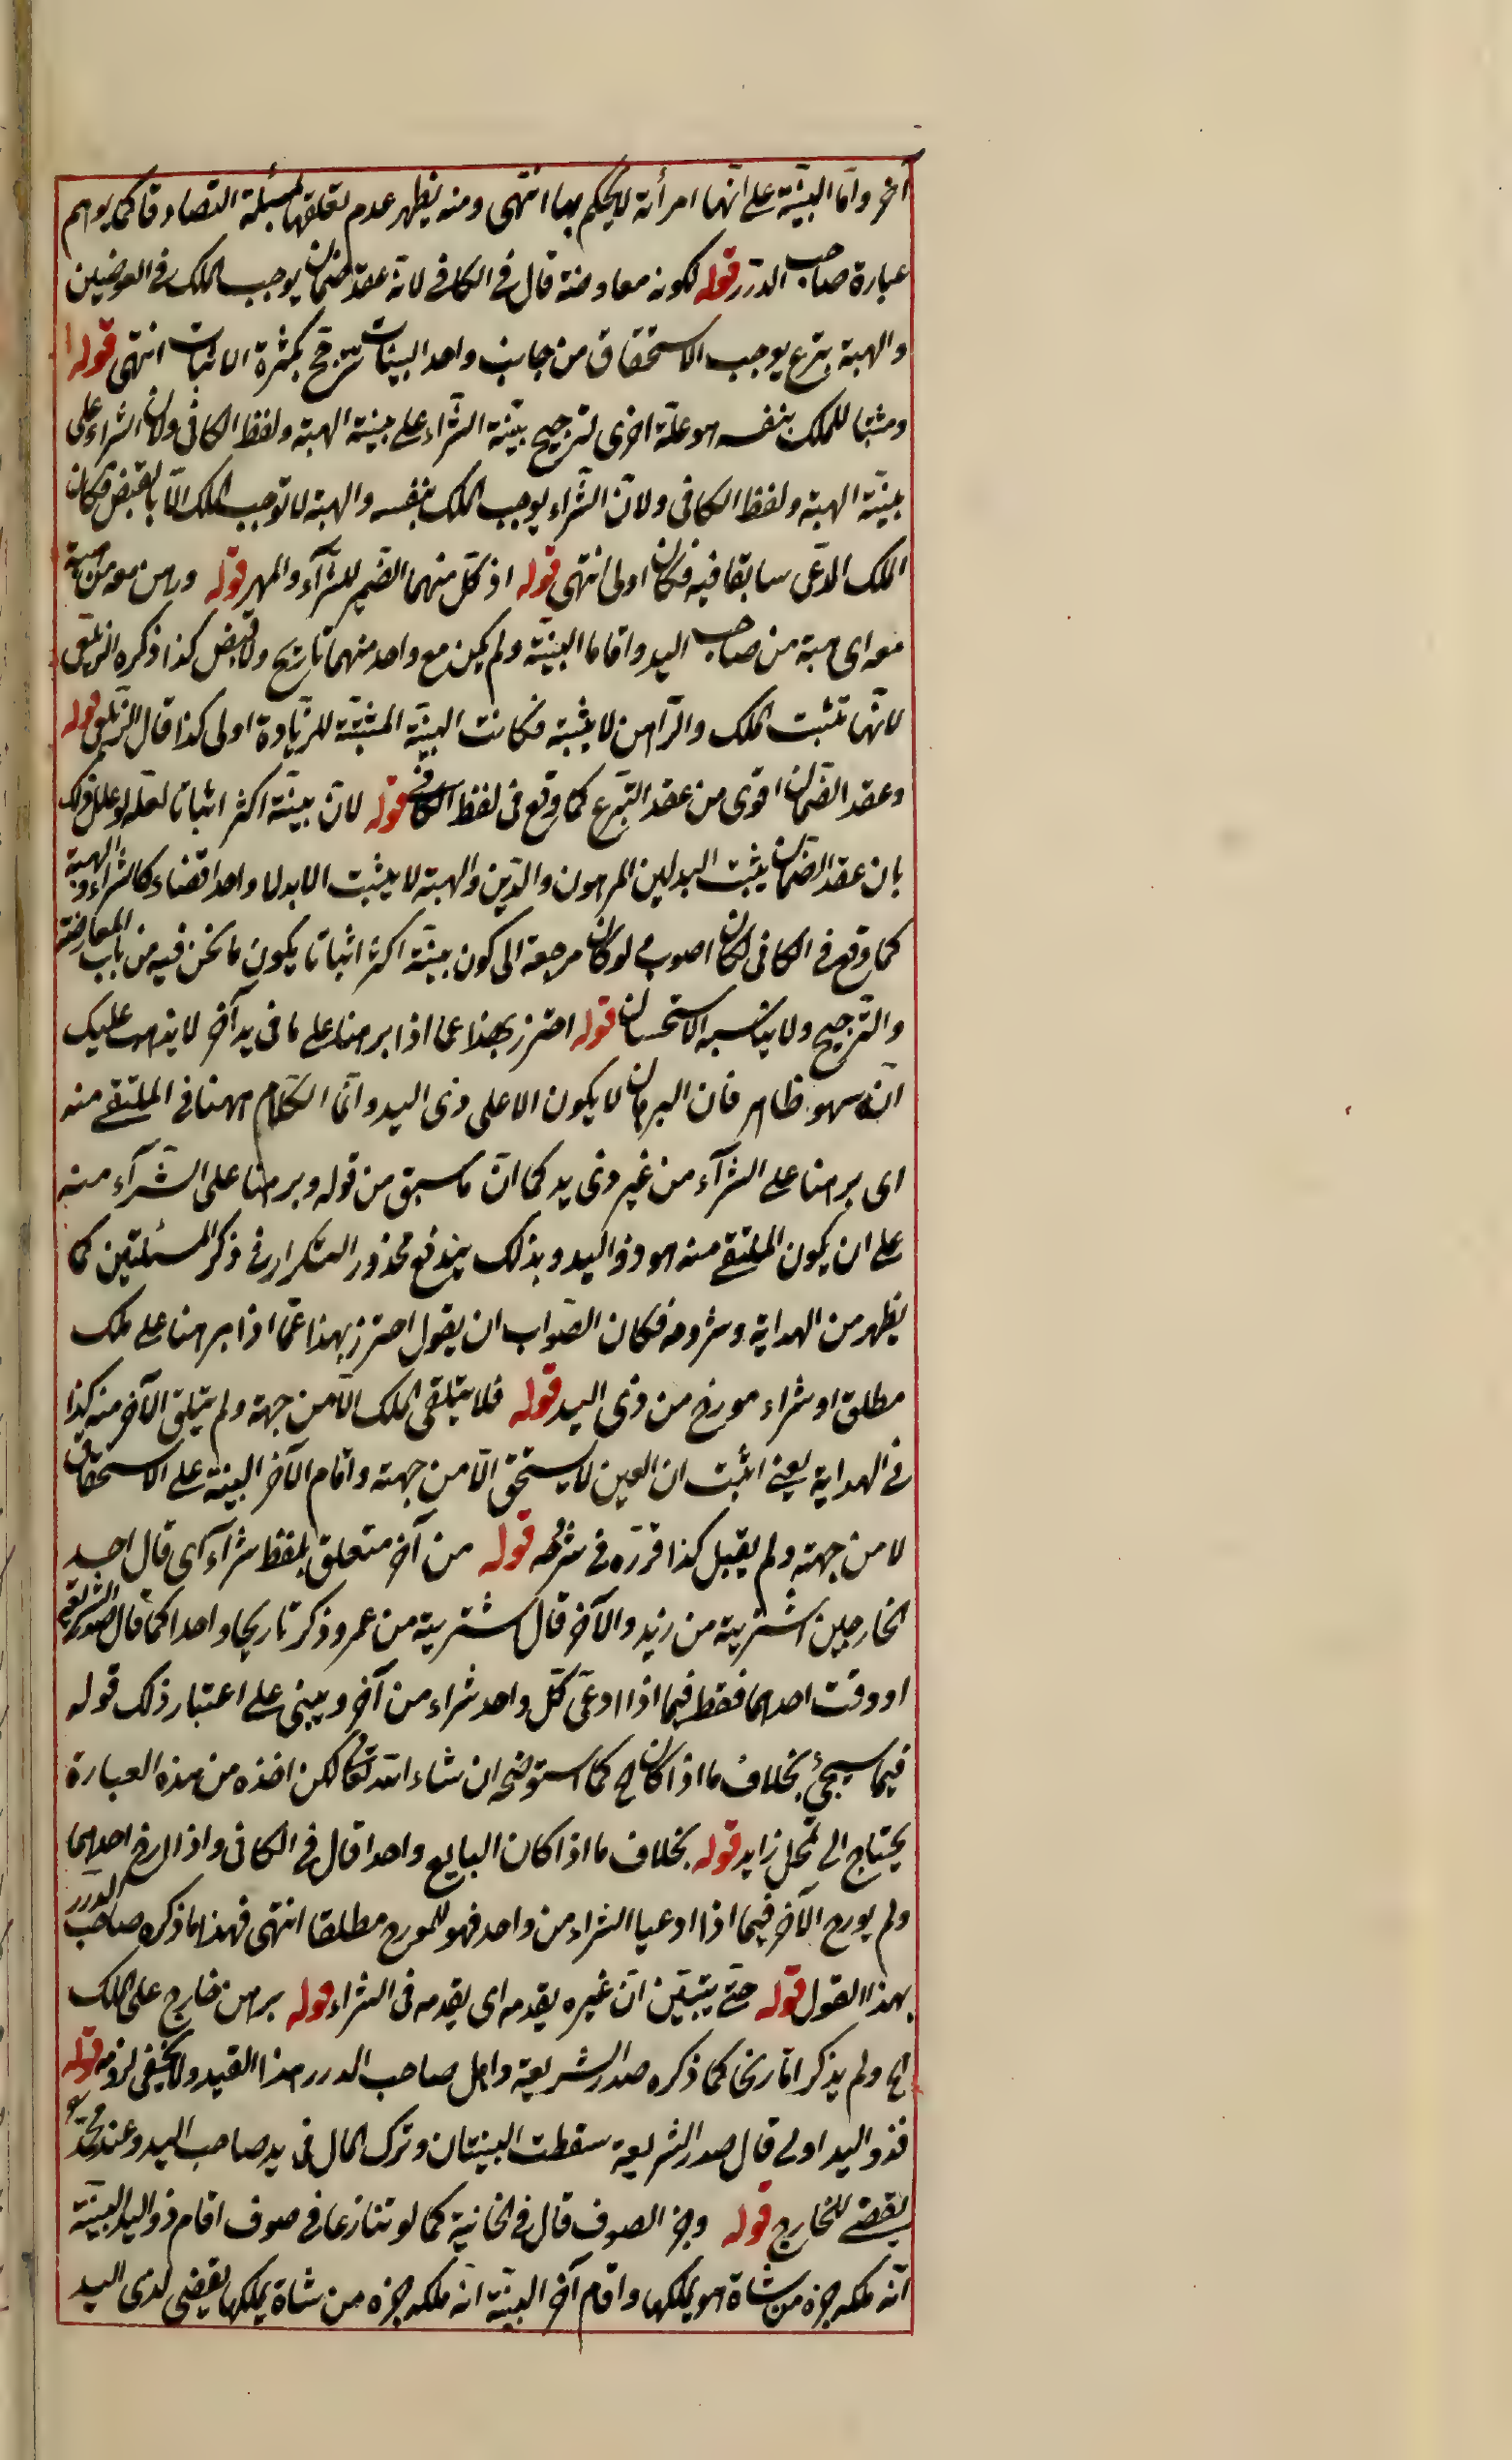 آخر وامّا البيّنة على انّها امرأته لايحكم بها انتهى ومنه يظهر عدم تعلقها بمسئلة التصادق كما يوهم
عبارة صاحب الدّرر قوله لكونه معاوضة قال فى الكافى لانّه عقد ضمان يوجب الملك فى العوضين
والهبة تبرّع يوجب الاستحقاق من جانب واحد البينات تترجّح بكثرة الاثبات انتهى قوله
ومثبتا للملك بنفسه هو علّة اخرى لترجيح بيّنة الشّراء على بينة الهبة ولفظ الكافى ولانّ الشراء على
بينّة الهبة ولفظ الكافى ولانّ الشّراء يوجب الملك بنفسه والهبة لا توجب الملك الّا بالقبض فكان
الملك المدّعى سابقا فيه فكان اولى انتهى قوله اذ كلّ منهما الضّمير للشّرآء والمهر قوله ورهن معه من هبة
معه اى هبة من صاحب اليد واقاما البينّة ولم يكن مع واحد منهما تاريخ ولا قبض كذا ذكره الزيلعى
لانّها تثبت الملك والرّاهن لا يثبته فكانت البينّة المثبتة للزّيادة اولى كذا قال الزّيلعى قوله
وعقد الضّمان اقوى من عقد التبرّع كما وقع فى لفظ الكافى قوله لانّ بينّة اكثر اثباتا لعلّه لو علل ذلك
بان عقد الضّمان يثبت البدلين المرهون والدّين والهبة لا يثبت الا بدلا واحدا قضاء كالشراء والهبة
كما وقع فى الكافى لكان اصوب لو كان مرجعه الى كون بينّة اكثر اثباتا يكون ما نحن فيه من باب المعارضة
والتّرجيح ولا يناسبه الاستحسان قوله احترز بهذا عما اذا برهنا على ما فى يد آخر لا يذهب عليك
انّه سهو ظاهر فان البرهان لا يكون الا على ذى اليد وانّما الكلام ههنا فى الملتقى منه
اى برهنا على الشرآء من غير ذى يد كما انّ ما سبق من قوله وبرهنا على الشّرآء منه
على ان يكون الملتقى منه هو ذو اليد وبذلك يندفع محذور التكرار فى ذكر المسئلتين كما
يظهر من الهداية وشروحه فكان الصّواب ان يقول احترز بهذا عمّا اذا برهنا على ملك
مطلق او شراء مورخ من ذى اليد قوله فلا يتلقى الملك الّا من جهته ولم يتلق الآخر منه كذا
فى الهداية يعنى اثبت ان العين لا يستحق الّا من جهته واقام الآخر البينة على الاستحقاق
لا من جهته ولم يقبل كذا قرّره فى شرحه قوله من آخر متعلق بلفظ شرآء اى قال احد
الخارجين اشتريته من زيد والآخر قال اشتريته من عمرو وذكر تاريخا واحدا كما قال صدر الشريعة
او وقت احدهما فقط فيما اذا ادعى كلّ واحد شراء من آخر ويبنى على اعتبار ذلك قوله
فيما سيجئ بخلاف ما اذا كان الخ كما ستوضحه ان شاء الله تعالى لكن اخذه من هذه العبارة
يحتاج الى تمحّل زايد قوله بخلاف ما اذا كان البايع واحدا قال فى الكافى واذا ارخ احدهما
ولم يورخ الآخر فيما اذا ادعيا الشراء من واحد فهو للمورخ مطلقا انتهى فهذا ما ذكره صاحب الدرر
بهذا القول قوله حتى يتبيّن انّ غيره يقدمه اى يقدمه فى الشراء قوله برهن خارج على الملك
الخ ولم يذكرا تاريخا كما ذكره صدر الشريعة واهمل صاحب الدرر هذا القيد ولا يخفى لزومه قوله
فذو اليد اولى قال صدر الشريعة سقطت البينتان وترك المال فى يد صاحب اليد وعند محمّد
يقضى للخارج قوله وجز الصوف قال فى الخانية كما لو تنازعا فى صوف اقام ذو اليد البينّة
انّه ملكه جزه من شاة هو يملكها واقام آخر البيّنة انّه ملكه جزه من شاة يملكها يقضى لذى اليد